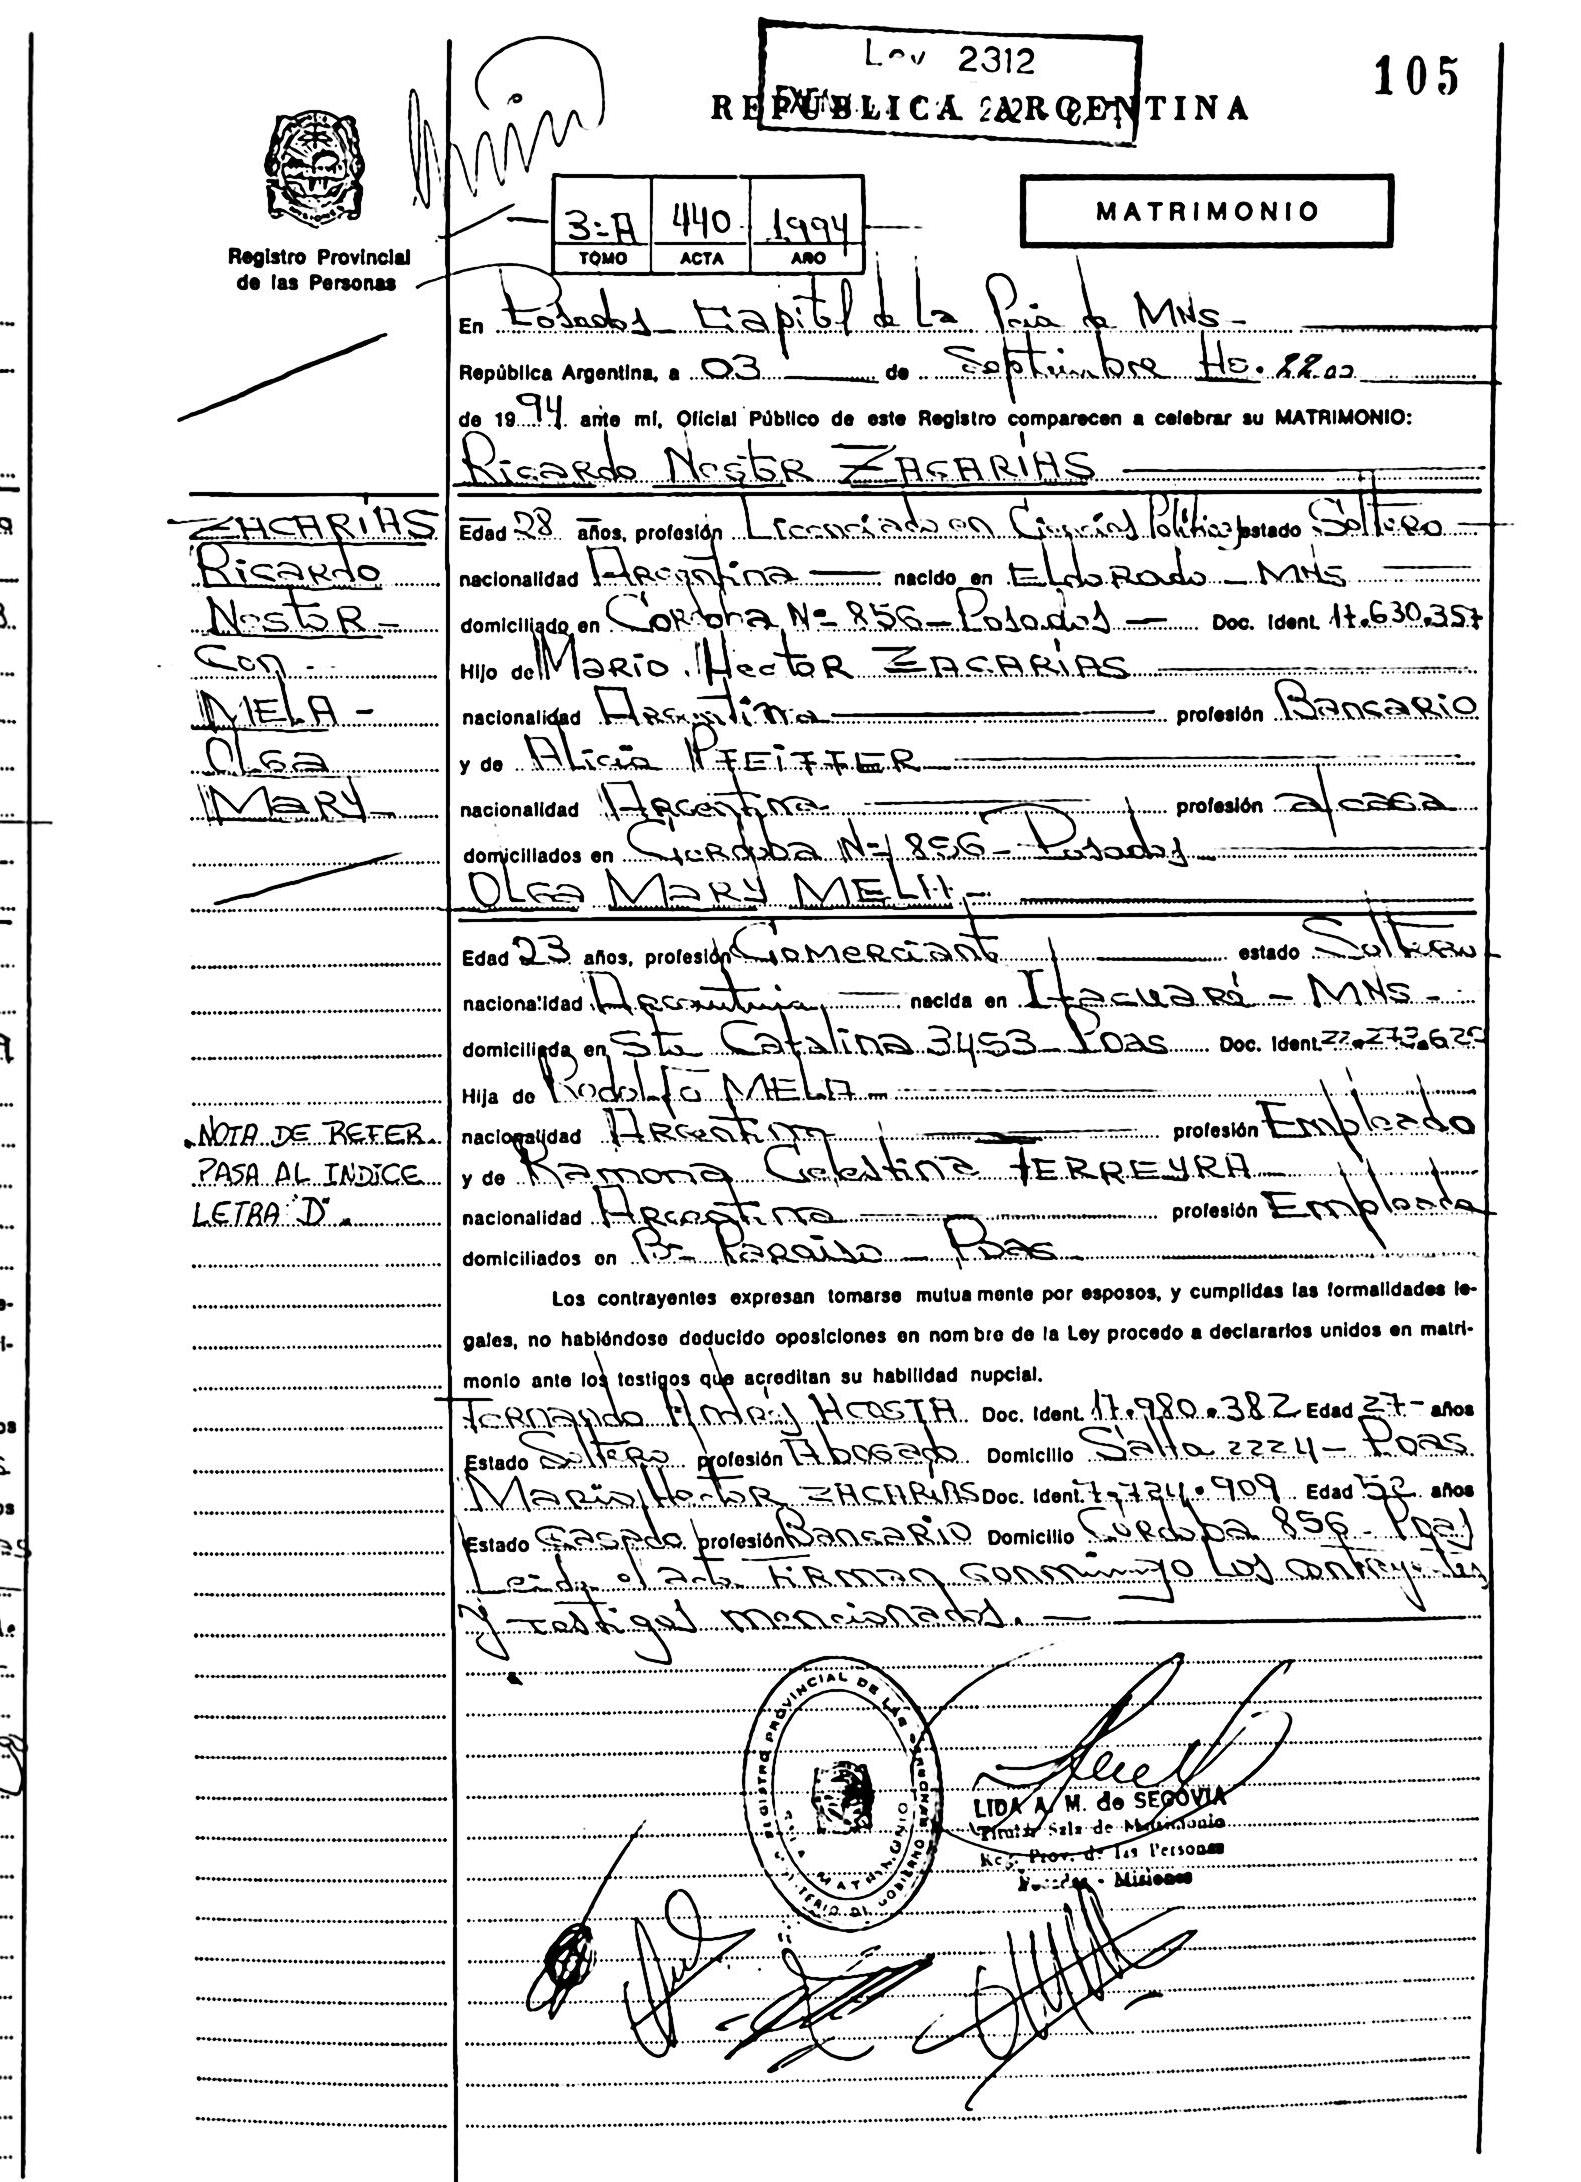 105
Ley 2312
REPUBLICA ARGENTINA
3-A 440 1994
TOMO ACTA AÑO
MATRIMONIO
Registro Provincial
de las Personas
En Posadas Capital de La Pcia de MNS-
República Argentina, a 03 de Septiembre Hs. 22.00
de 1994 ante mí, Oficial Público de este Registro comparecen a celebrar su MATRIMONIO:
Ricardo Nestor ZACARÍAS
ZACARÍAS
Ricardo
Nestor -
Con -
MELA -
OLGA
MARY -
Edad 28 años, profesión Licenciado en Ciencias Políticas estado Soltero
nacionalidad Argentina nacido en Eldorado - MNS
domiciliado en Cordoba Nº 856 - Posadas - Doc. Ident. 17.630.357
Hijo de Mario Hector ZACARÍAS
nacionalidad Argentina profesión Bancario
y de Alicia PFEIFFER
nacionalidad Argentina profesión a/casa
domiciliados en Cordoba Nº 856 - Posadas
OLGA MARY MELA -
Edad 23 años, profesión Comerciante estado Soltera
nacionalidad Argentina nacida en Itacuaré - MNS -
domiciliada en Sta Catalina 3453 - Pdas Doc. Ident. 22.273.625
Hija de Rodolfo MELA -
nacionalidad Argentina profesión Empleado
y de Ramona Celestina FERREYRA
nacionalidad Argentina profesión Empleada
domiciliados en Bº Paraiso - Pdas -
NOTA DE REFER.
PASA AL INDICE
LETRA "D".
Los contrayentes expresan tomarse mutuamente por esposos, y cumplidas las formalidades le-
gales, no habiéndose deducido oposiciones en nombre de la Ley procedo a declararlos unidos en matri-
monio ante los testigos que acreditan su habilidad nupcial.
Fernando Andrés ACOSTA Doc. Ident. 17.980.382 Edad 27- años
Estado Soltero profesión Abogado Domicilio Salta 2224 - Pdas
Mario Hector ZACARÍAS Doc. Ident. 7.724.909 Edad 52 años
Estado Casado profesión Bancario Domicilio Cordoba 856 - Pdas
Leida el acta FIRMAN conmigo los contrayentes
y testigos mencionados. -
REGISTRO PROVINCIAL DE LAS PERSONAS
MINISTERIO DE GOBIERNO
SALA MATRIMONIO
LIDA A. M. de SEGOVIA
Titular Sala de Matrimonio
Reg. Prov. de las Personas
Posadas - Misiones